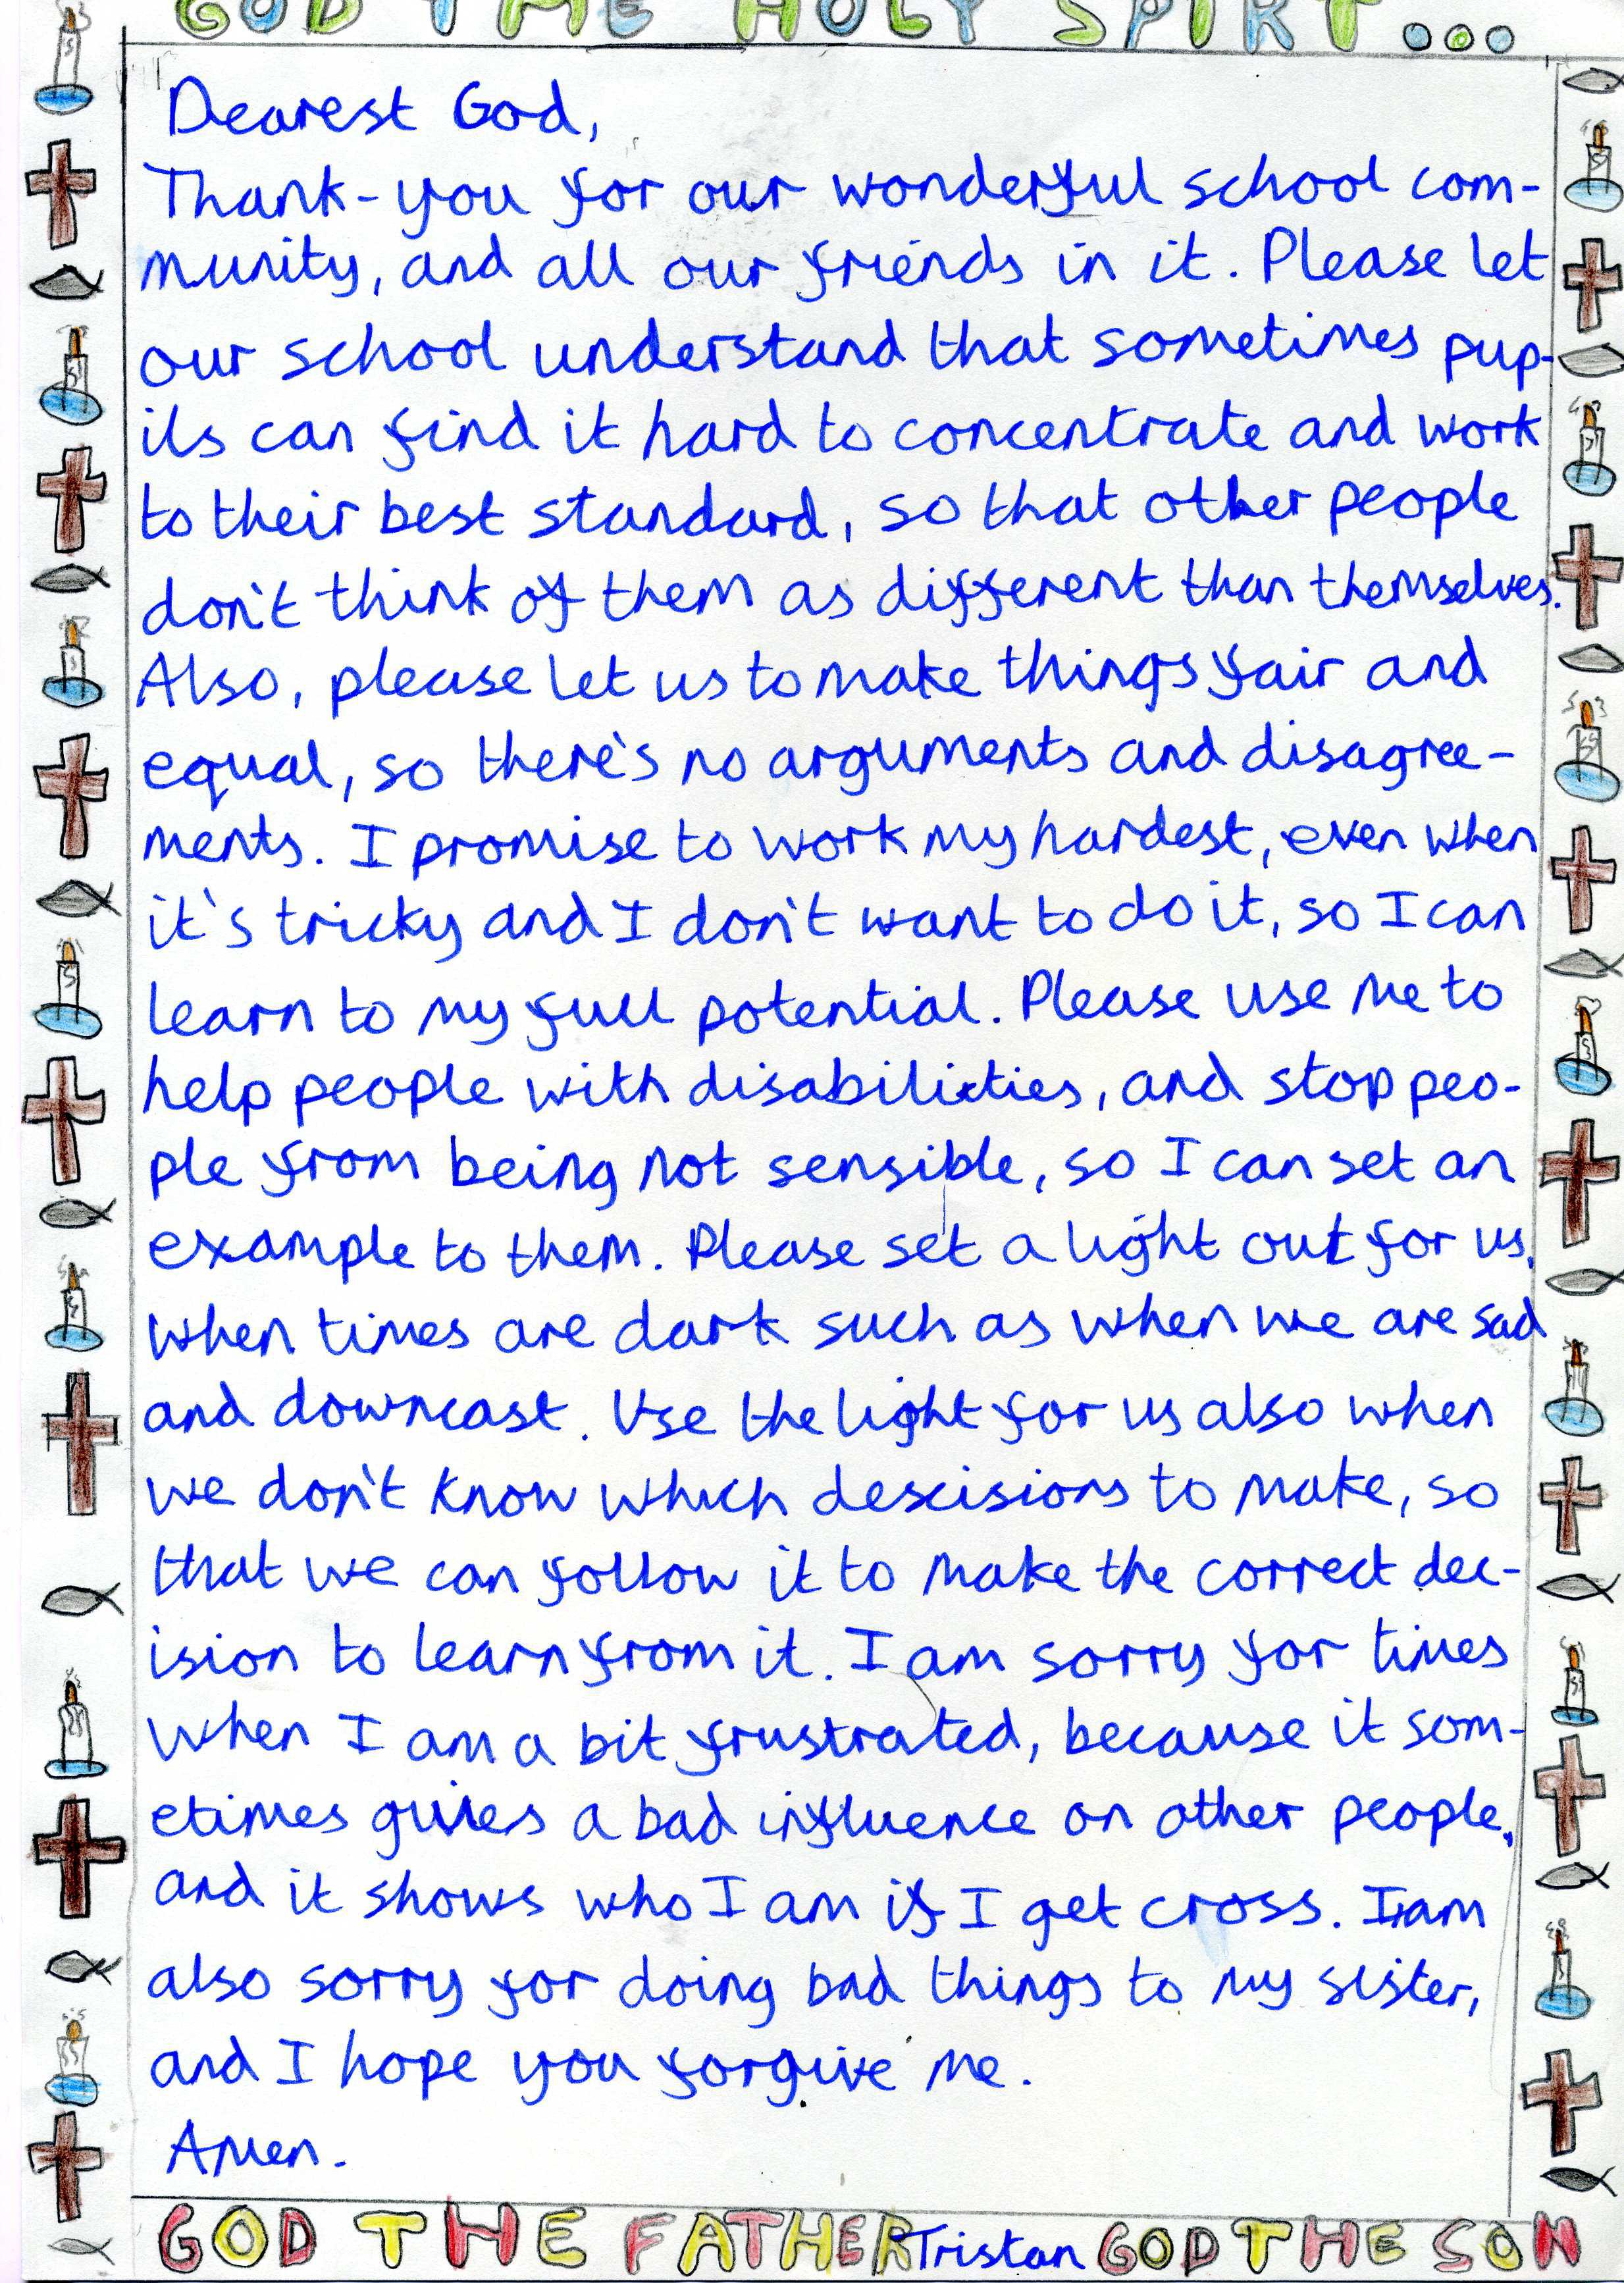 GOD THE HOLY SPIRT...
Dearest God,
Thank-you for our wonderful school com-
munity, and all our friends in it. Please let
our school understand that sometimes pup-
ils can find it hard to concentrate and work
to their best standard, so that other people
don't think of them as different than themselves.
Also, please let us to make things fair and
equal, so there's no arguments and disagree-
ments. I promise to work my hardest, even when
it's tricky and I don't want to do it, so I can
learn to my full potential. Please use me to
help people with disabilities, and stop peo-
ple from being not sensible, so I can set an
example to them. Please set a light out for us,
when times are dark such as when we are sad
and downcast. Use the light for us also when
we don't know which descisions to make, so
that we can follow it to make the correct dec-
ision to learn from it. I am sorry for times
when I am a bit frustrated, because it som-
etimes gives a bad influence on other people,
and it shows who I am if I get cross. I am
also sorry for doing bad things to my sister,
and I hope you forgive me.
Amen.
GOD THE FATHER Tristan GOD THE SON